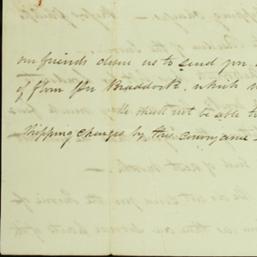 our friends desire us to send pr
of flour pr Braddock, which w
We shall not be able to
shipping charges by this conveyance